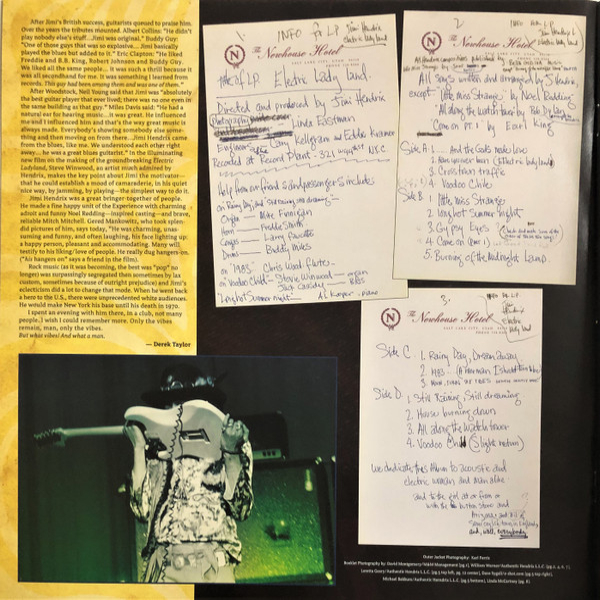 After Jimi's British success, guitarists queued to praise him.
Over the years the tributes mounted. Albert Collins: "He didn't
play nobody else's stuff....Jimi was original." Buddy Guy:
"One of those guys that was so explosive.... Jimi basically
played the blues but added to it." Eric Clapton: "He liked
Freddie and B.B. King, Robert Johnson and Buddy Guy.
We liked all the same people.... It was such a thrill because it
was all secondhand for me. It was something I learned from
records. This guy had been among them and was one of them."
After Woodstock, Neil Young said that Jimi was "absolutely
the best guitar player that ever lived; there was no one even in
the same building as that guy." Miles Davis said: "He had a
natural ear for hearing music....It was great. He influenced
me and I influenced him and that's the way great music is
always made. Everybody's showing somebody else some-
thing and then moving on from there. ...Jimi Hendrix came
from the blues, like me. We understood each other right
away....he was a great blues guitarist." In the illuminating
new film on the making of the groundbreaking Electric
Ladyland, Steve Winwood, an artist much admired by
Hendrix, makes the key point about Jimi the motivator—
that he could establish a mood of camaraderie, in his quiet
nice way, by jamming, by playing—the simplest way to do it.
Jimi Hendrix was a great bringer together of people.
He made a fine happy unit of the Experience with charming
adroit and funny Noel Redding—inspired casting—and brave,
reliable Mitch Mitchell. Gered Mankowitz, who took splen-
did pictures of him, says today, "He was charming, unas-
suming and funny, and often laughing, his face lighting up:
a happy person, pleasant and accommodating. Many will
testify to his liking/love of people. He really dug hangers-on.
("Air hangers on" says a friend in the film).
Rock music (as it was becoming, the best was "pop" no
longer) was surpassingly segregated then sometimes by lax
custom, sometimes because of outright prejudice) and Jimi's
eclecticism did a lot to change that mode. When he went back
a hero to the U.S., there were unprecedented white audiences.
He would make New York his base until his death in 1970.
I spent an evening with him there, in a club, not many
people..I wish I could remember more. Only the vibes
remain, man, only the vibes.
But what vibes! And what a man.
— Derek Taylor
1.
INFO for LP
Jimi Hendrix
electric lady land
N
The Newhouse Hotel
title of LP. Electric Lady land.
Directed and produced by Jimi Hendrix
Photography
Linda Eastman
Engineers - Gary Kellgram and Eddie Kramer
Recorded at Record Plant - 321 NYC
Help from our friends and passengers includes
on Rainy Day, and Still raining, still dreaming -
Organ — Mike Finnigan
Horn — Freddie Smith
Congas — Larry Faucette
Drums — Buddy Miles
on "1983" Chris Wood - flutes -
on Voodoo Chile - Stevie Winwood - organ
Jack Casidy - bass
"Long hot Summer night" - Al Kooper - piano
2
INFO for LP
Jimi Hendrix
electric lady land
N
The Newhouse Hotel
All Songs written and arranged by J. Hendrix
except 'little miss strange' by Noel Redding
'All along the watch tower' by Bob Dylan
Come on PT. 1 by Earl King
Side A 1. ... And the Gods made love
2. Have you ever been (Electric lady land)
3. Crosstown traffic
4. Voodoo Chile
Side B 1. little miss Strange
2. Long hot Summer Night
3. Gypsy Eyes
4. Come on (part 1)
5. Burning of the Midnight Lamp.
3.
INFO for LP
Jimi Hendrix
electric lady land
N
The Newhouse Hotel
Side C 1. Rainy Day, Dream away.
2. 1983 ... (A Merman I Should turn to be)
3. Moon, turn the tides
Side D. 1. Still Raining, Still dreaming
2. House burning down
3. All along the Watch tower
4. Voodoo Child (Slight return)
we dedicate this Album to acoustic and
electric woman and man alike
and to the girl at or from or
with the button store and
Arizona, and
in England,
and, well, everybody
Outer Jacket Photography: Karl Ferris